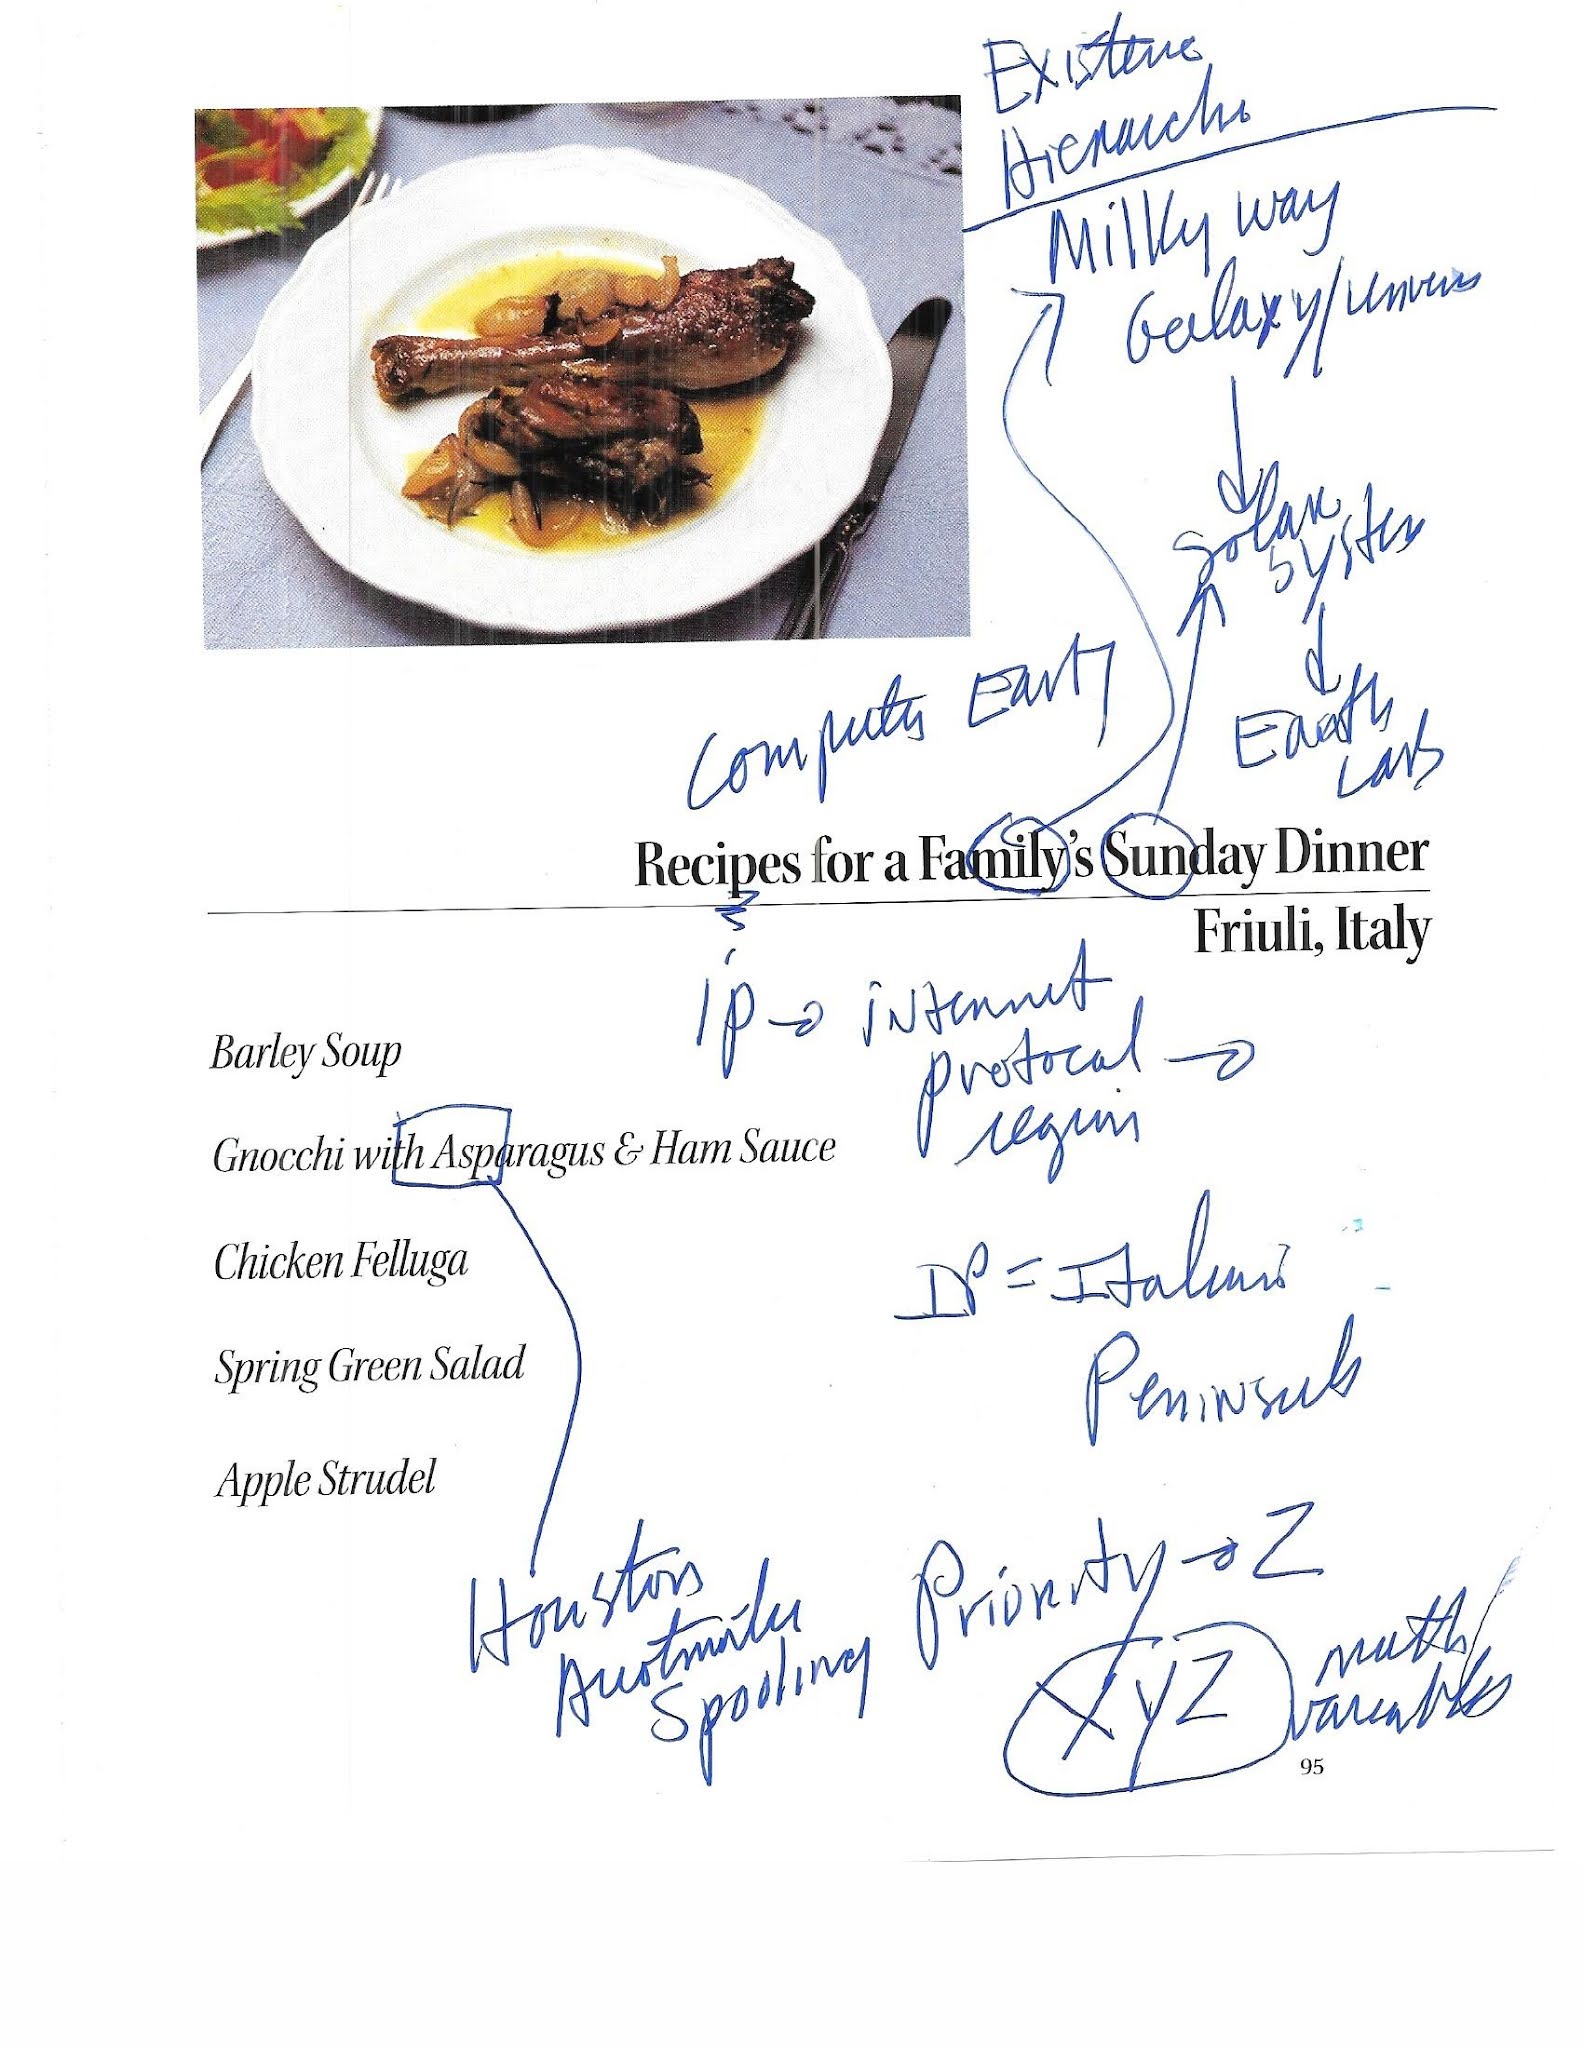 Hierarchi
Milky Way
Galaxy/
Solar
System
Earth
Computer Earth
Recipes for a Family's Sunday Dinner
Friuli, Italy
ip → internet
protocal →
region
Barley Soup
Gnocchi with Asparagus & Ham Sauce
Chicken Felluga
IP = Italian
Peninsula
Spring Green Salad
Apple Strudel
Houston
Spooling
Priority → Z
XYZ
math
variables
95